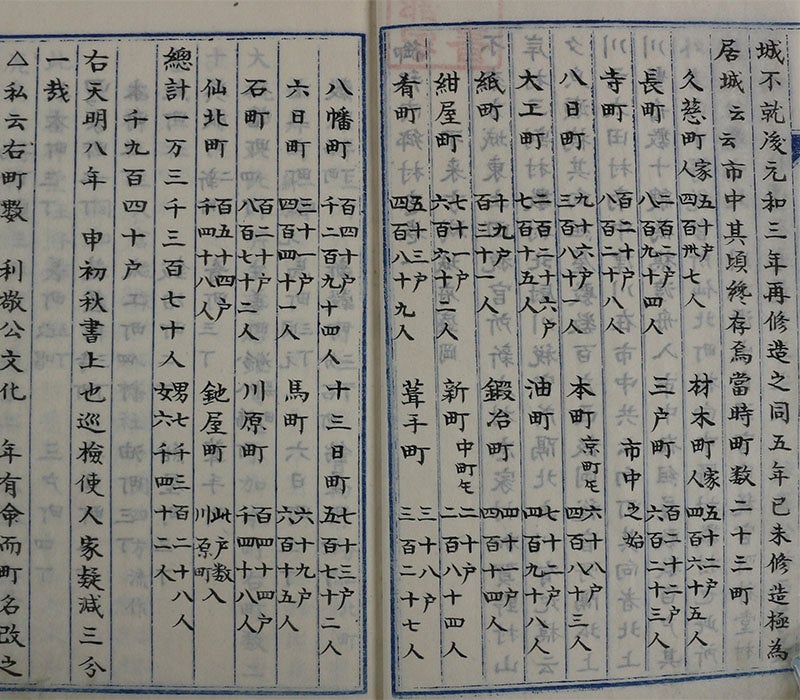 城不就後元和三年再修造之同五年已未修造極為
居城云云市中其頃終存焉當時町数二十三町
久慈町 家五十戸 人四百卅七人 材木町 家五十二戸 人四百六十五人
長町 二百二戸 八百九十四人 三戸町 百二十二戸 六百二十三人
寺町 百二十戸 八百二十八人 市中之始
八日町 九十六戸 三百八十一人 本町 京町トモ 六十八戸 四百八十三人
大工町 二百二十六戸 七百十五人 油町 七十二戸 四百九十八人
紙町 十九戸 百三十一人 鍛冶町 四十一戸 四百十四人
紺屋町 七十一戸 六百六十二人 新町 中町トモ 二十戸 二百八十四人
肴町 五十三戸 四百八十九人 葺手町 三十八戸 三百二十七人
八幡町 百四十戸 千二百九十四人 十三日町 七十三戸 五百七十二人
六日町 三十一戸 四百四十一人 馬町 六十九戸 六百十五人
石町 百二十戸 八百七十二人 川原町 百四十四戸 千四十八人
仙北町 二百五十四戸 千四十八人 鉇屋町 此戸数入川原町
總計一万三千三百七十人 男七千三百二十八人 女六千四十二人
千九百四十戸
右天明八年 申初秋書上也巡檢使人家疑減三分
一哉
△私云右町數 利敬公文化 年有命而町名改之